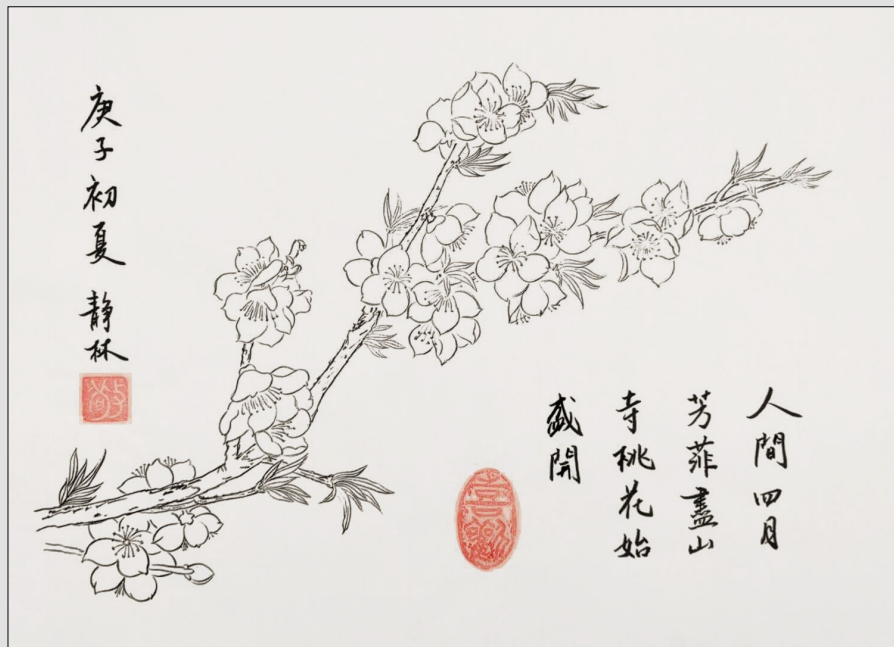 人間四月
芳菲盡山
寺桃花始
盛開
庚子初夏 靜林